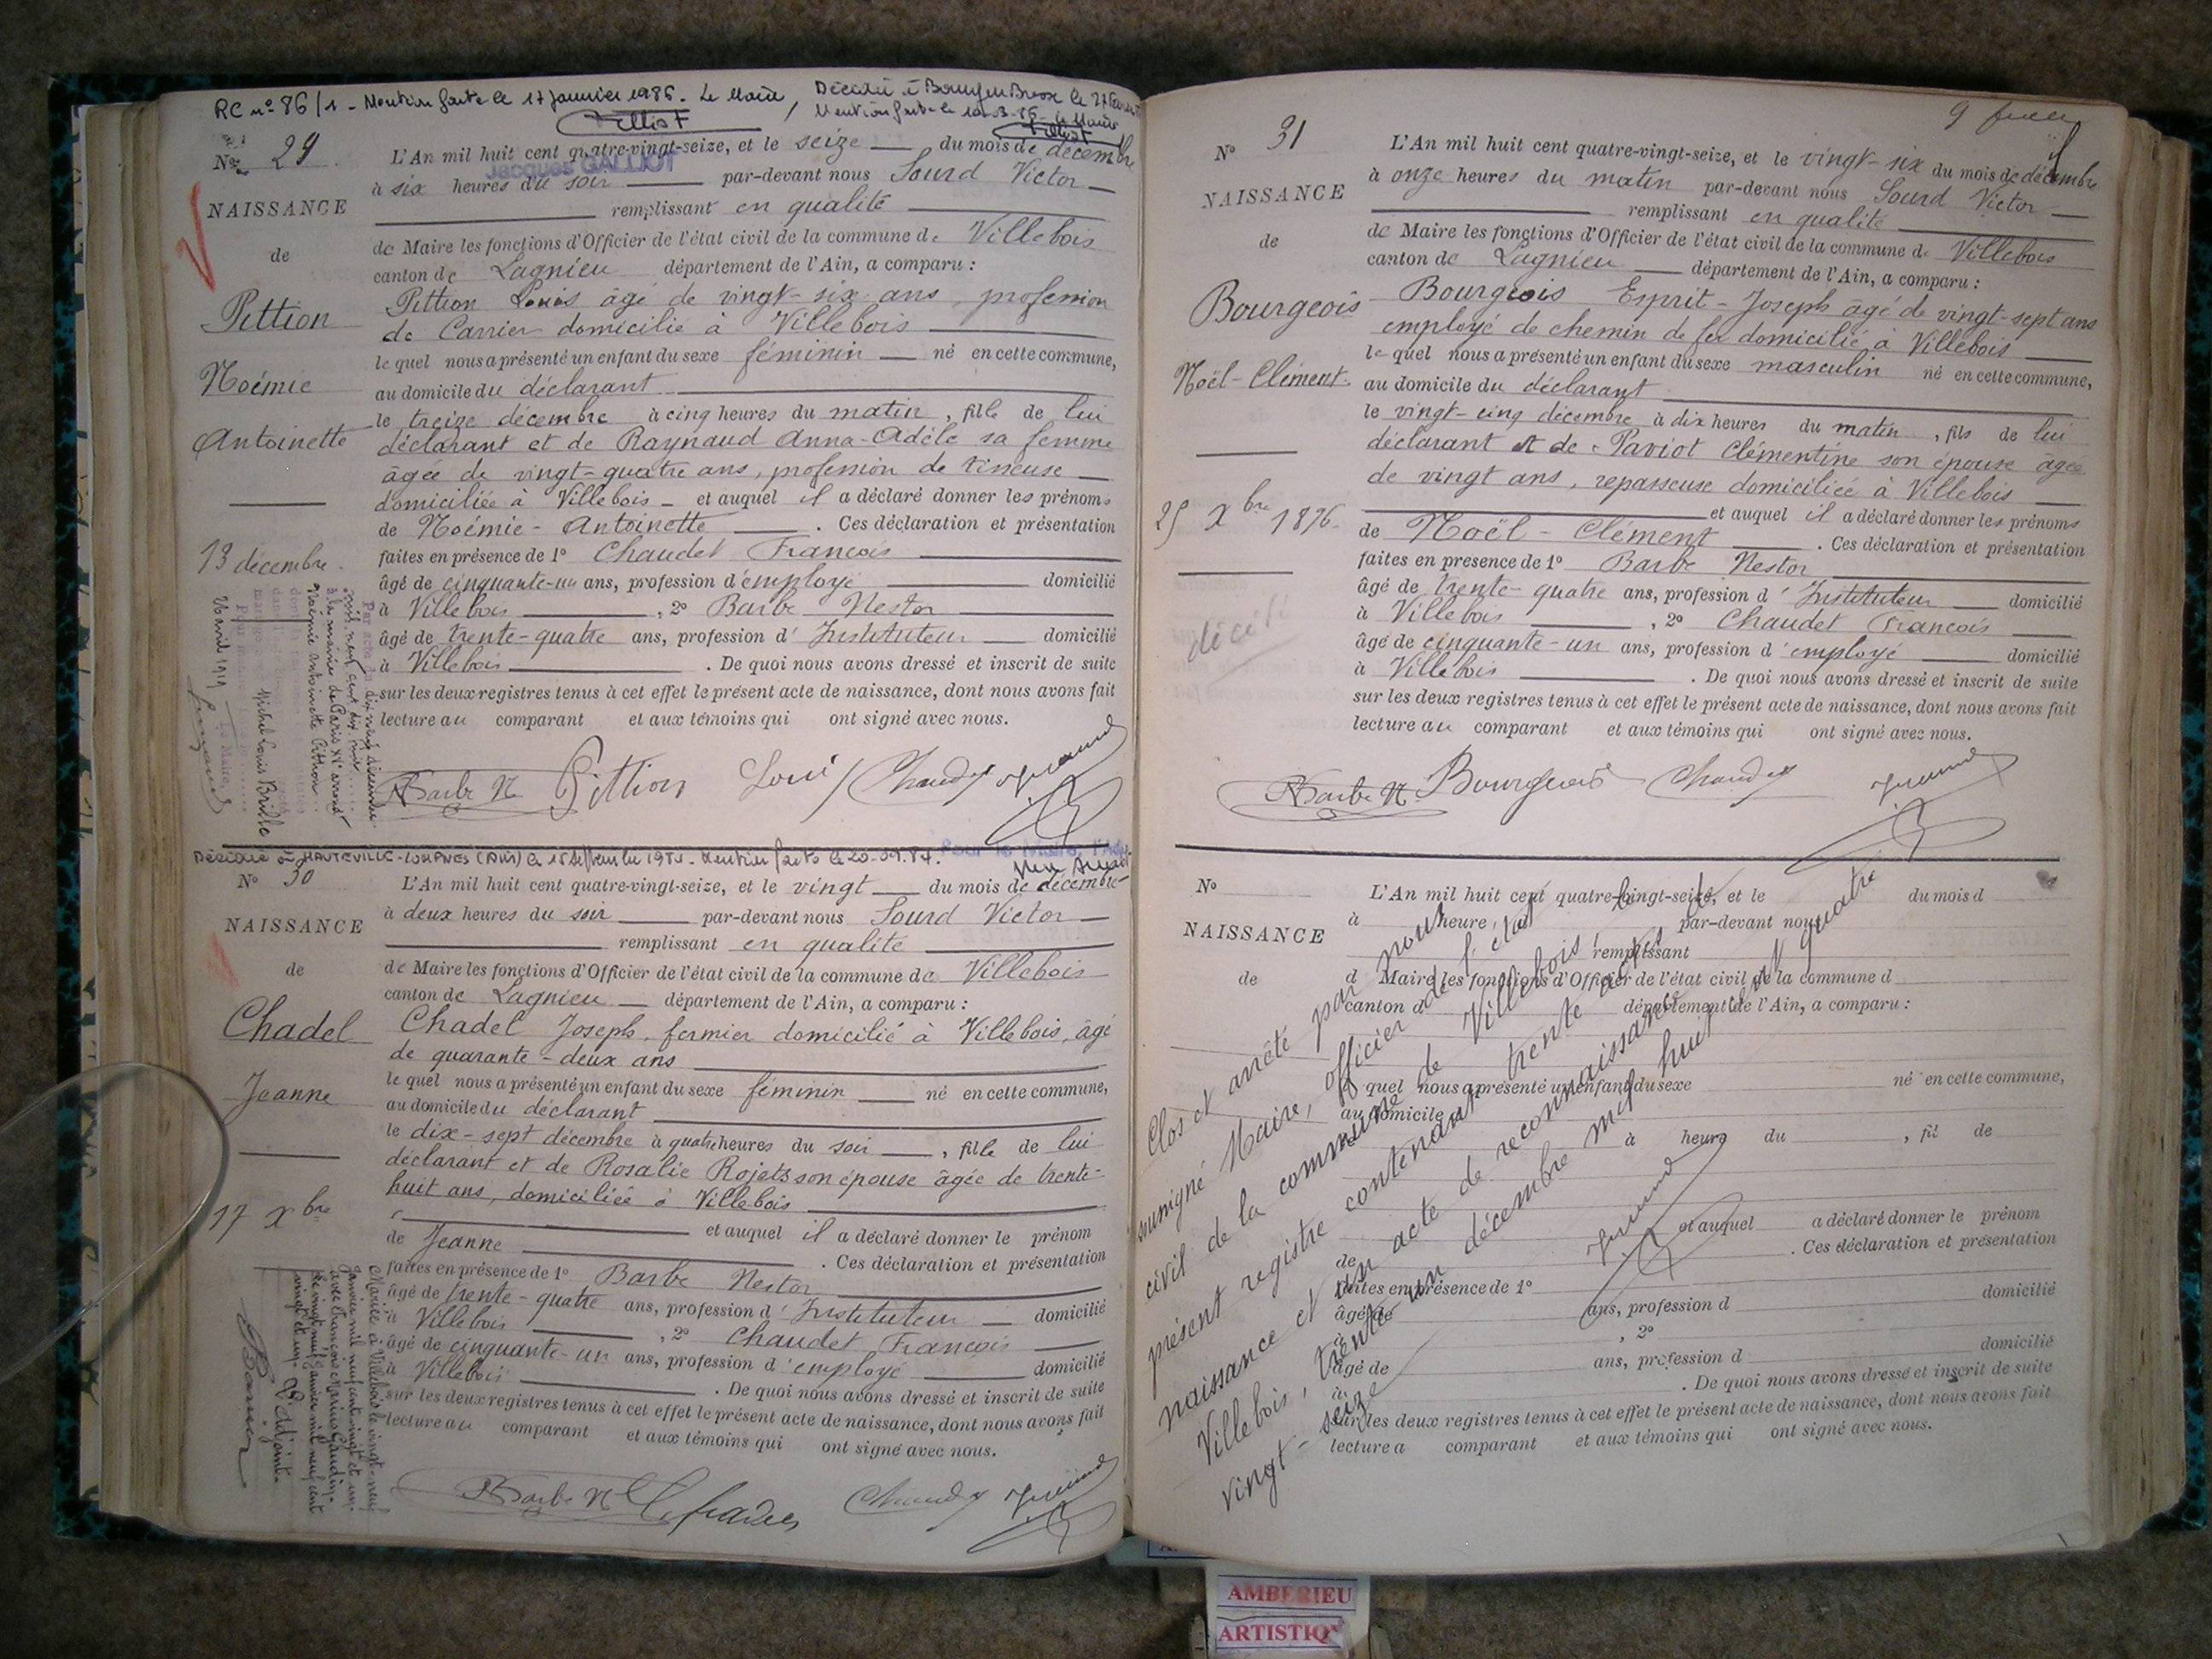 RC nº 86/1 - Mention faite le 17 janvier 1986. Le Maire,
Décédée à Bourg en Bresse le 27
Mention faite le 10-3-86- le Maire
Jacques GALLIOT
Nº 29
NAISSANCE
de
Pittion
Noémie
Antoinette
13 décembre.
L'An mil huit cent quatre-vingt-seize, et le seize du mois de décembre
à six heures du soir par-devant nous Sourd Victor
remplissant en qualité
de Maire les fonctions d'Officier de l'état civil de la commune de Villebois
canton de Lagnieu département de l'Ain, a comparu :
Pittion Louis âgé de vingt-six ans, profession
de Carrier domicilié à Villebois
le quel nous a présenté un enfant du sexe féminin né en cette commune,
au domicile du déclarant
le treize décembre à cinq heures du matin, fille de lui
déclarant et de Raynaud Anna-Adèle sa femme
âgée de vingt-quatre ans, profession de tisseuse
domiciliée à Villebois - et auquel il a déclaré donner les prénoms
de Noémie-Antoinette. Ces déclaration et présentation
faites en présence de 1º Chaudet François
âgé de cinquante-un ans, profession d'employé domicilié
à Villebois, 2º Barbe Nestor
âgé de trente-quatre ans, profession d'Instituteur domicilié
à Villebois. De quoi nous avons dressé et inscrit de suite
sur les deux registres tenus à cet effet le présent acte de naissance, dont nous avons fait
lecture au comparant et aux témoins qui ont signé avec nous.
Barbe N Pittion Louis Chaudet
Par acte du dix neuf décembre
mil neuf cent dix huit
à la mairie de Paris
Noémie Antoinette Pittion
Michel Louis Brille
avril 1919
Le Maire,
Décédée à HAUTEVILLE-LOMPNES (AIN) le 15 Septembre 1984. Mention faite le 20-09.84.
Pour le Maire,
Nº 30
NAISSANCE
de
Chadel
Jeanne
17 Xbre
L'An mil huit cent quatre-vingt-seize, et le vingt du mois de décembre
à deux heures du soir par-devant nous Sourd Victor
remplissant en qualité
de Maire les fonctions d'Officier de l'état civil de la commune de Villebois
canton de Lagnieu département de l'Ain, a comparu :
Chadel Joseph, fermier domicilié à Villebois, âgé
de quarante-deux ans
le quel nous a présenté un enfant du sexe féminin né en cette commune,
au domicile du déclarant
le dix-sept décembre à quatre heures du soir, fille de lui
déclarant et de Rosalie Rojats son épouse âgée de trente-
huit ans, domiciliée à Villebois
et auquel il a déclaré donner le prénom
de Jeanne. Ces déclaration et présentation
faites en présence de 1º Barbe Nestor
âgé de trente-quatre ans, profession d'Instituteur domicilié
à Villebois, 2º Chaudet François
âgé de cinquante-un ans, profession d'employé domicilié
à Villebois. De quoi nous avons dressé et inscrit de suite
sur les deux registres tenus à cet effet le présent acte de naissance, dont nous avons fait
lecture au comparant et aux témoins qui ont signé avec nous.
Barbe N Chaudet
Mariée à Villebois le vingt-neuf
Janvier mil neuf cent vingt et un
avec François Marius Gaudin
le vingt neuf janvier mil neuf cent
vingt et un. L'adjoint
Nº 31
NAISSANCE
de
Bourgeois
Noël-Clément.
25 Xbre 1896.
décédé
L'An mil huit cent quatre-vingt-seize, et le vingt-six du mois de décembre
à onze heures du matin par-devant nous Sourd Victor
remplissant en qualité
de Maire les fonctions d'Officier de l'état civil de la commune de Villebois
canton de Lagnieu département de l'Ain, a comparu :
Bourgeois Esprit-Joseph âgé de vingt-sept ans
employé de chemin de fer domicilié à Villebois
le quel nous a présenté un enfant du sexe masculin né en cette commune,
au domicile du déclarant
le vingt-cinq décembre à dix heures du matin, fils de lui
déclarant et de Paviot Clémentine son épouse âgée
de vingt ans, repasseuse domiciliée à Villebois
et auquel il a déclaré donner les prénoms
de Noël-Clément. Ces déclaration et présentation
faites en présence de 1º Barbe Nestor
âgé de trente-quatre ans, profession d'Instituteur domicilié
à Villebois, 2º Chaudet François
âgé de cinquante-un ans, profession d'employé domicilié
à Villebois. De quoi nous avons dressé et inscrit de suite
sur les deux registres tenus à cet effet le présent acte de naissance, dont nous avons fait
lecture au comparant et aux témoins qui ont signé avec nous.
Barbe N. Bourgeois Chaudet
Nº
NAISSANCE
de
L'An mil huit cent quatre-vingt-seize, et le du mois d
à heure par-devant nous
remplissant
d Maire les fonctions d'Officier de l'état civil de la commune d
canton d département de l'Ain, a comparu :
le quel nous a présenté un enfant du sexe né en cette commune,
au domicile
à heure du, fil de
et auquel a déclaré donner le prénom
de. Ces déclaration et présentation
faites en présence de 1º
âgé de ans, profession d domicilié
à, 2º
âgé de ans, profession d domicilié
à. De quoi nous avons dressé et inscrit de suite
sur les deux registres tenus à cet effet le présent acte de naissance, dont nous avons fait
lecture a comparant et aux témoins qui ont signé avec nous.
Clos et arrêté par nous
soussigné Maire, officier de l'état
civil de la commune de Villebois, le
présent registre contenant trente actes de
naissance et un acte de reconnaissance
Villebois, trente un décembre mil huit cent quatre
vingt-seize
AMBERIEU
ARTISTIQ